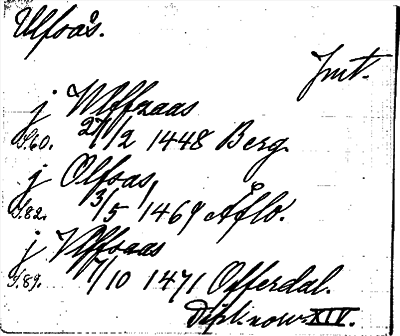 Ulfsås.
Jmt.
j Wlffzaas
S.60. 27/12 1448 Berg.
j Olfsas,
S.82. 3/5 1469 Åflo.
j Vlffsaas
S.89. 7/10 1471 Offerdal.
Dipl. norv. XIV.